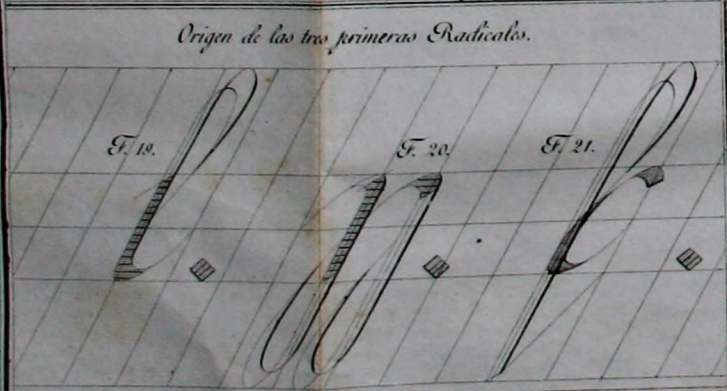 Origen de las tres primeras Radicales.
F. 19. F. 20. F. 21.